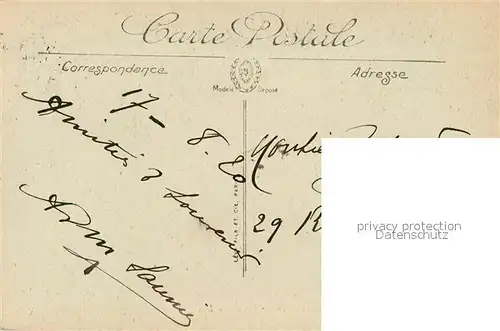 Carte Postale
Correspondance
Adresse
Modèle Déposé
17-
8.20
Amitiés & Souvenir
LEVY FILS ET CIE, PARIS
29 R
privacy protection
Datenschutz